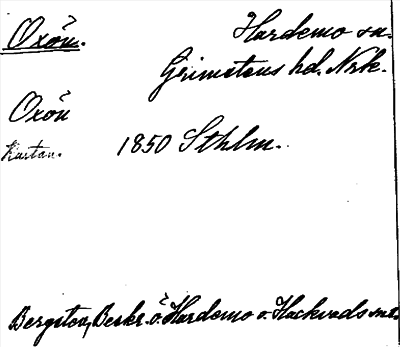 Oxön.
Hardemo sn.
Grimstens hd. Nrk.
Oxön
Kartan. 1850 Sthlm.
Bergsten, Beskr. ö. Hardemo o. Hackvads snr.